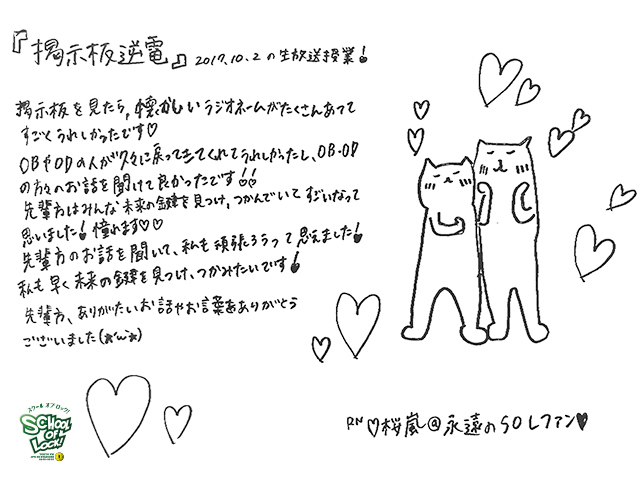 『掲示板逆電』 2017.10.2の生放送授業！
掲示板を見たら、懐かしいラジオネームがたくさんあって
すごくうれしかったです♡
OBやODの人が久々に戻ってきてくれてうれしかったし、OB・OD
の方々のお話を聞けて良かったです！！
先輩方はみんな未来の鍵を見つけ、つかんでいてすごいなって
思いました！憧れます♡♡
先輩方のお話を聞いて、私も頑張ろうって思えました！
私も早く未来の鍵を見つけ、つかみたいです！
先輩方、ありがたいお話やお言葉をありがとう
ございました(*'ω'*)
スクール オブ ロック！
SCHOOL
OF
LOCK!
RN ♡桜嵐@永遠のSOLファン♥